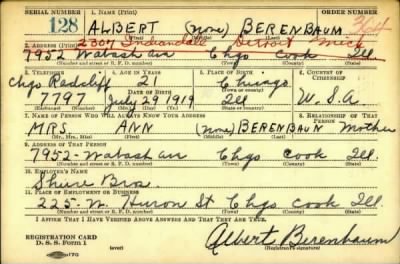 SERIAL NUMBER 1. NAME (Print) ORDER NUMBER
128 ALBERT (none) BERENBAUM
2307 Detroit Mich
2. ADDRESS (Print)
7952 Wabash av Chgo Cook Ill.
(Number and street or R. F. D. number) (Town) (County) (State)
3. TELEPHONE 4. AGE IN YEARS 5. PLACE OF BIRTH 6. COUNTRY OF CITIZENSHIP
Chgo Radcliff 21 Chicago
DATE OF BIRTH
7797 July 29 1919 Ill U.S.A
(Exchange) (Number) (Mo.) (Day) (Yr.) (State or country)
7. NAME OF PERSON WHO WILL ALWAYS KNOW YOUR ADDRESS 8. RELATIONSHIP OF THAT PERSON
MRS. ANN (none) BERENBAUM Mother
(Mr., Mrs., Miss) (First) (Middle) (Last)
9. ADDRESS OF THAT PERSON
7952 - Wabash av Chgo Cook Ill.
(Number and street or R. F. D. number) (Town) (County) (State)
10. EMPLOYER'S NAME
Shure Bros.
11. PLACE OF EMPLOYMENT OR BUSINESS
225 - W. Huron St Chgo Cook Ill.
(Number and street or R. F. D. number) (Town) (County) (State)
I AFFIRM THAT I HAVE VERIFIED ABOVE ANSWERS AND THAT THEY ARE TRUE.
REGISTRATION CARD
D. S. S. Form 1 (over) Albert Berenbaum
(Registrant's signature)